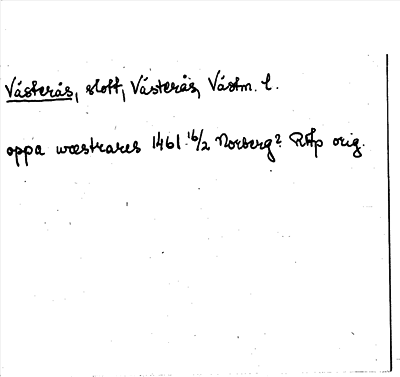 Västerås, slott, Västerås, Västm. l.
oppa wæstrares 1461 16/2 Norberg? RAp orig.